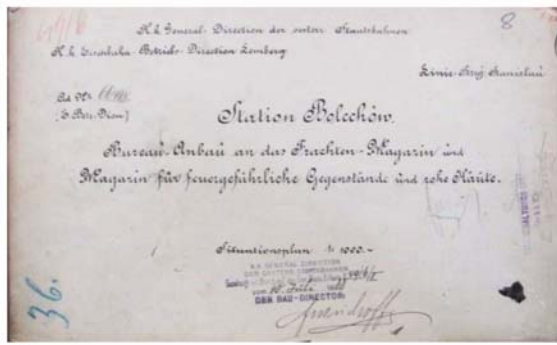 8
K. k. General-Direction der österr. Staatsbahnen
K. k. Eisenbahn-Betriebs-Direction Lemberg
Linie Stryj-Stanislau
Ad No
Station Bolechów.
Bureau-Anbau an das Frachten-Magazin und
Magazin für feuergefährliche Gegenstände und rohe Häute.
Situationsplan 1000.-
K.K. GENERAL-DIRECTION
DER ÖSTERR. STAATSBAHNEN
vom 10. Juli
DER BAU-DIRECTOR:
36.